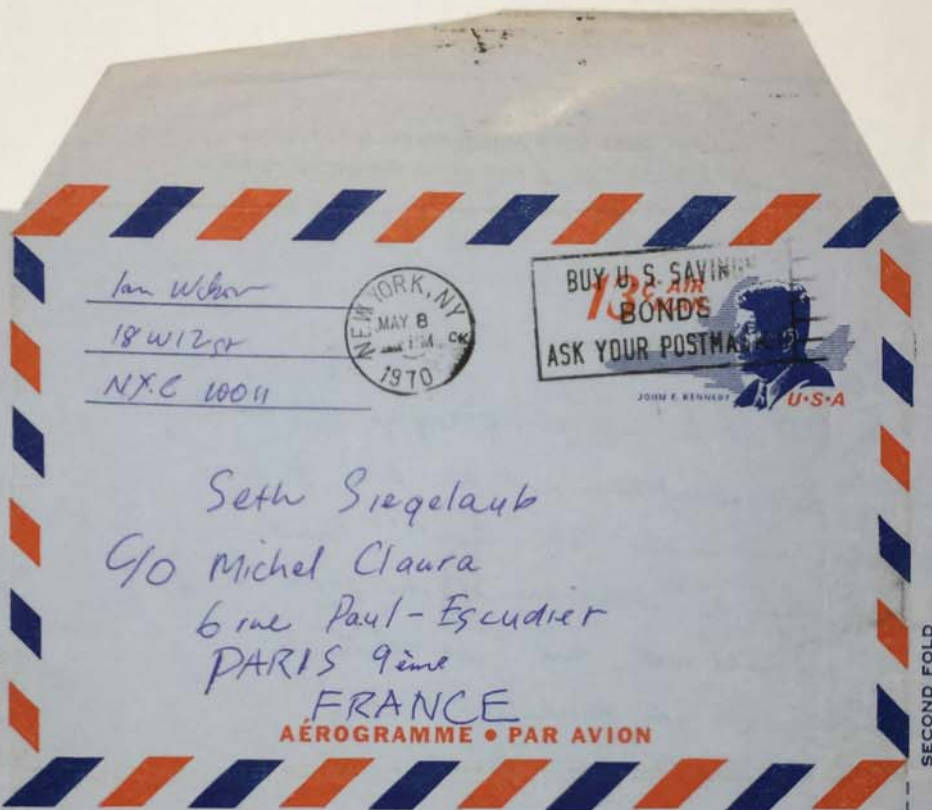 Ian Wilson
18 W 12 st
N.Y.C 10011
NEW YORK, NY
MAY 8
PM
1970
BUY U.S. SAVINGS
BONDS
ASK YOUR
13¢ AIR MAIL
JOHN F. KENNEDY
U·S·A
Seth Siegelaub
C/O Michel Claura
6 rue Paul-Escudier
PARIS 9ème
FRANCE
AÉROGRAMME • PAR AVION
SECOND FOLD